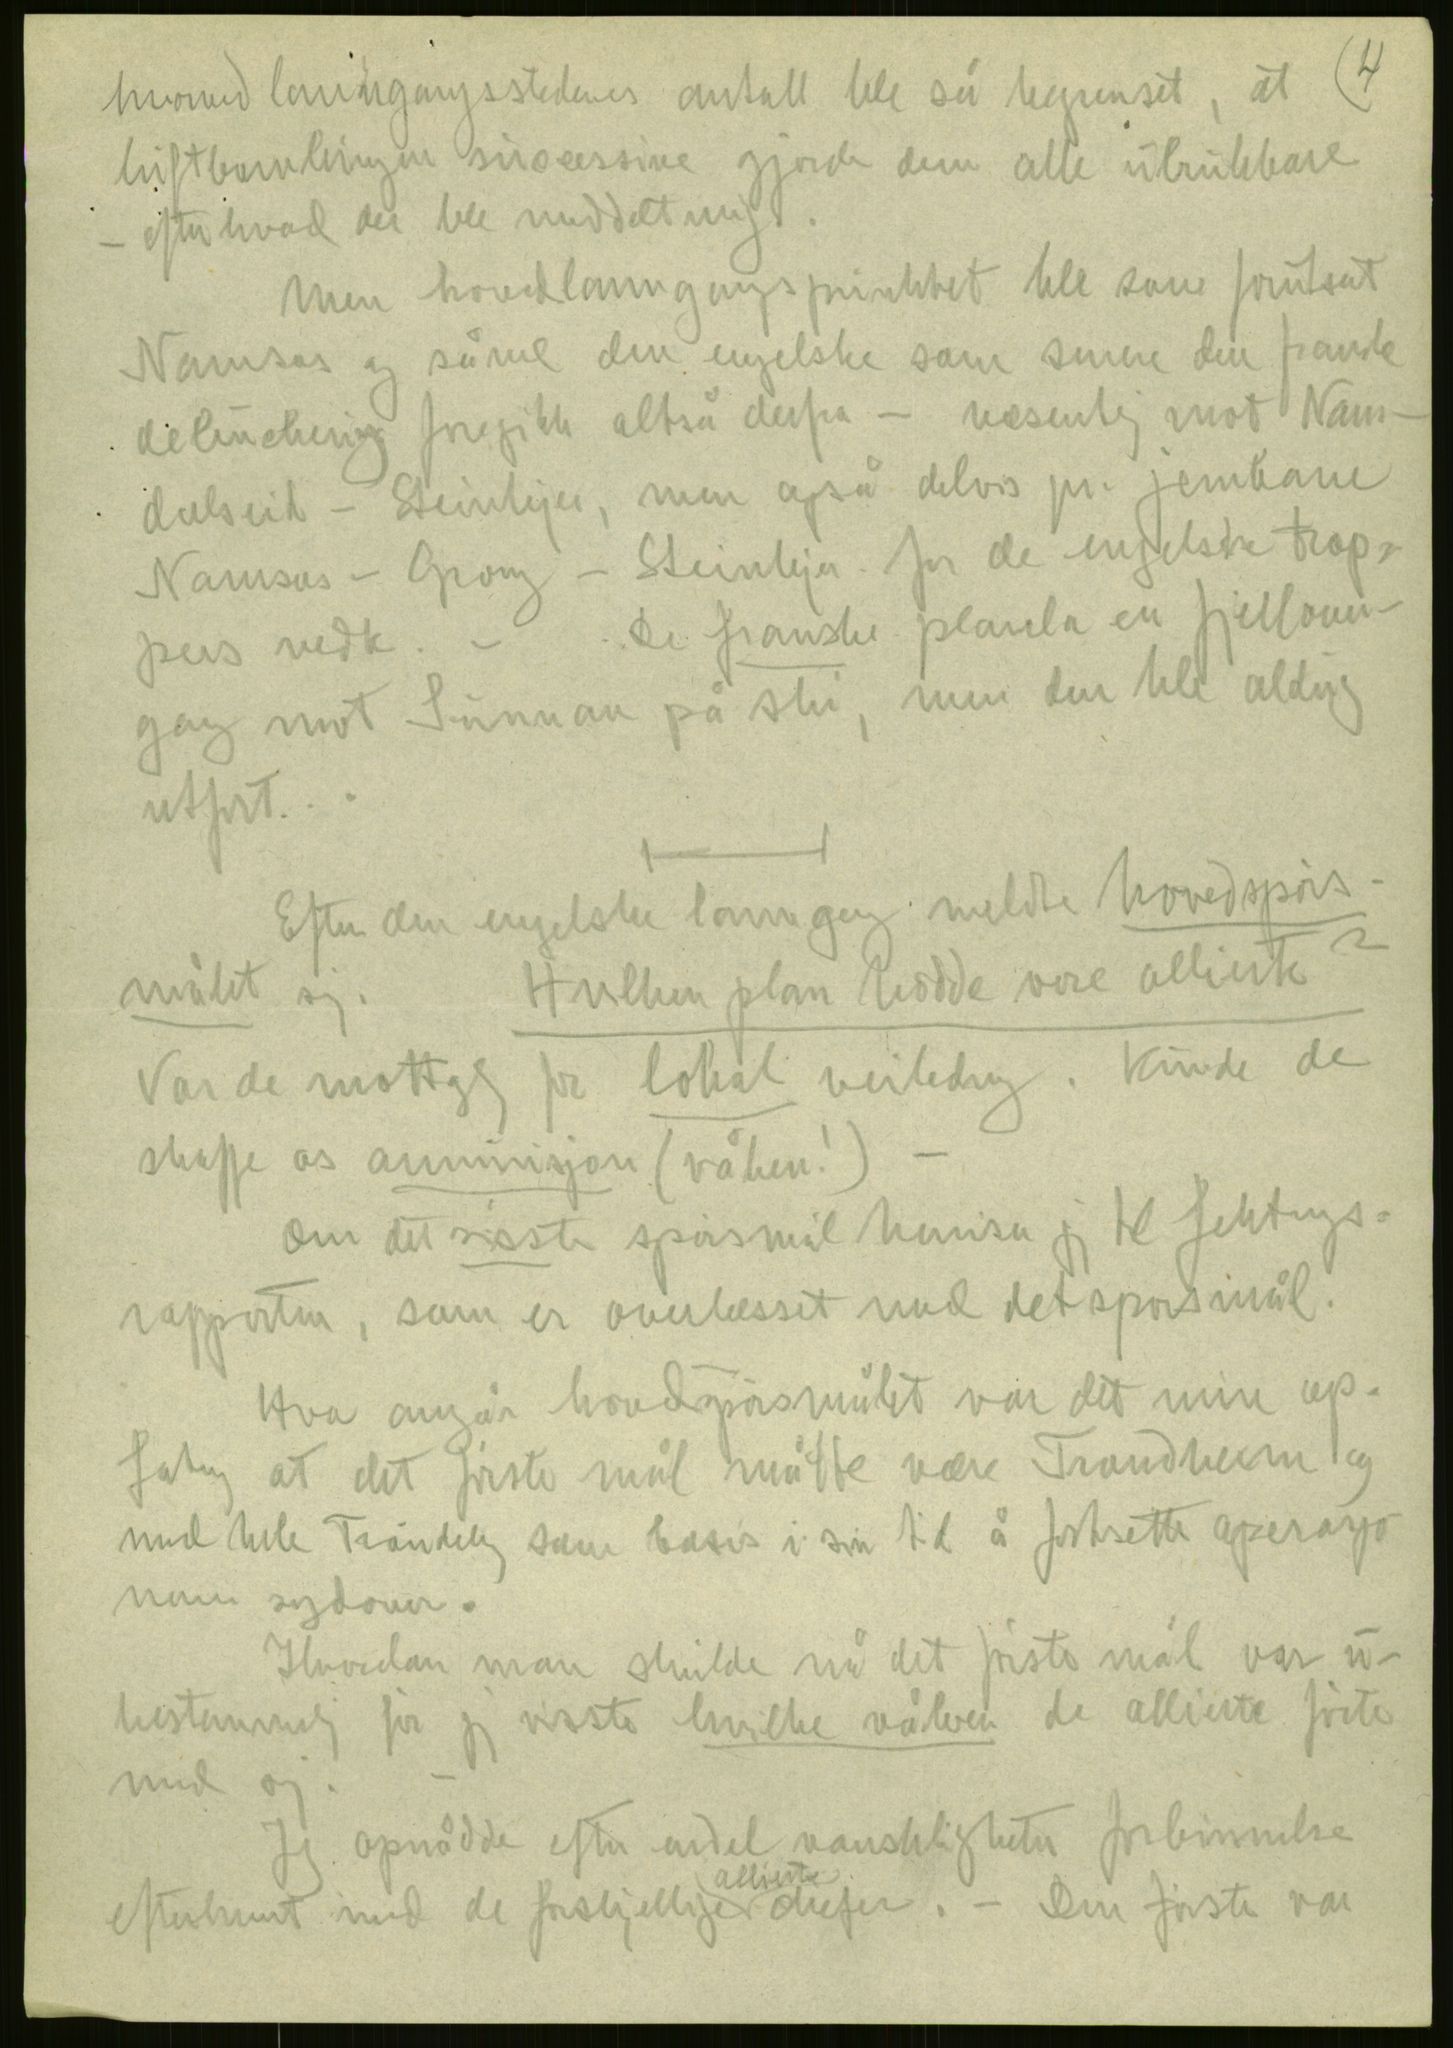 (4
hvorved landgangsstedenes antall ble så begrenset, at
luftbombingen suksessive gjorde dem alle ubrukbare
– efter hvad der ble meddelt mig.
Men hovedlandgangspunktet ble som forutsatt
Namsos og såvel den engelske som senere den franske
debarkering foregikk altså derfra – vesentlig mot Nam-
dalseid – Steinkjer, men også delvis pr. jernbane
Namsos – Grong – Steinkjer for de engelske trop-
pers vedk. – De franske planela en fjellover-
gang mot Sunnan på ski, men den ble aldrig
utført.
Efter den engelske landgang meldte hovedspørs-
målet sig. Hvilken plan hadde våre allierte?
Var de mottagelig for lokal veiledning. Kunde de
skaffe os ammunisjon (våben!) –
Om det sisste spørsmål henviser jeg til fektnings-
rapporten, som er overlesset med det spørsmål.
Hva angår hovedspørsmålet var det min op-
fatning at det første mål måtte være Trondheim og
med hele Trøndelag som basis i sin tid å fortsette operasjo
nene sydover.
Hvordan man skulde nå det første mål var u-
bestemmelig før jeg visste hvilke våben de allierte førte
med sig. –
Jeg opnådde efter endel vanskligheter forbinnelse
efterhvert med de forskjellige allierte chefer. – Den første var